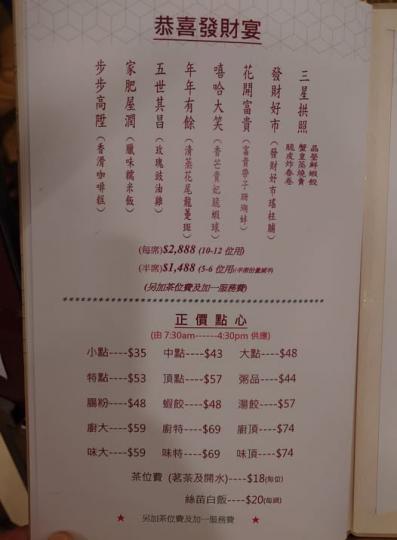 恭喜發財宴
三星拱照
晶瑩鮮蝦餃
蟹皇蒸燒賣
脆皮炸春卷
發財好市 (發財好市瑤柱脯)
花開富貴 (富貴帶子珊瑚蚌)
嘻哈大笑 (香芒貴妃脆蝦球)
年年有餘 (清蒸花尾龍躉斑)
五世其昌 (玫瑰豉油雞)
家肥屋潤 (臘味糯米飯)
步步高陞 (香滑咖啡糕)
(每席)$2,888 (10-12 位用)
(半席)$1,488 (5-6 位用)(半席份量減半)
(另加茶位費及加一服務費)
正價點心
(由 7:30am------4:30pm 供應)
小點----$35 中點----$43 大點----$48
特點----$53 頂點----$57 粥品----$44
腸粉----$48 蝦餃----$48 湯餃----$57
廚大----$59 廚特----$69 廚頂----$74
味大----$59 味特----$69 味頂----$74
茶位費 (茗茶及開水)----$18(每位)
絲苗白飯----$20(每碗)
★ 另加茶位費及加一服務費 ★